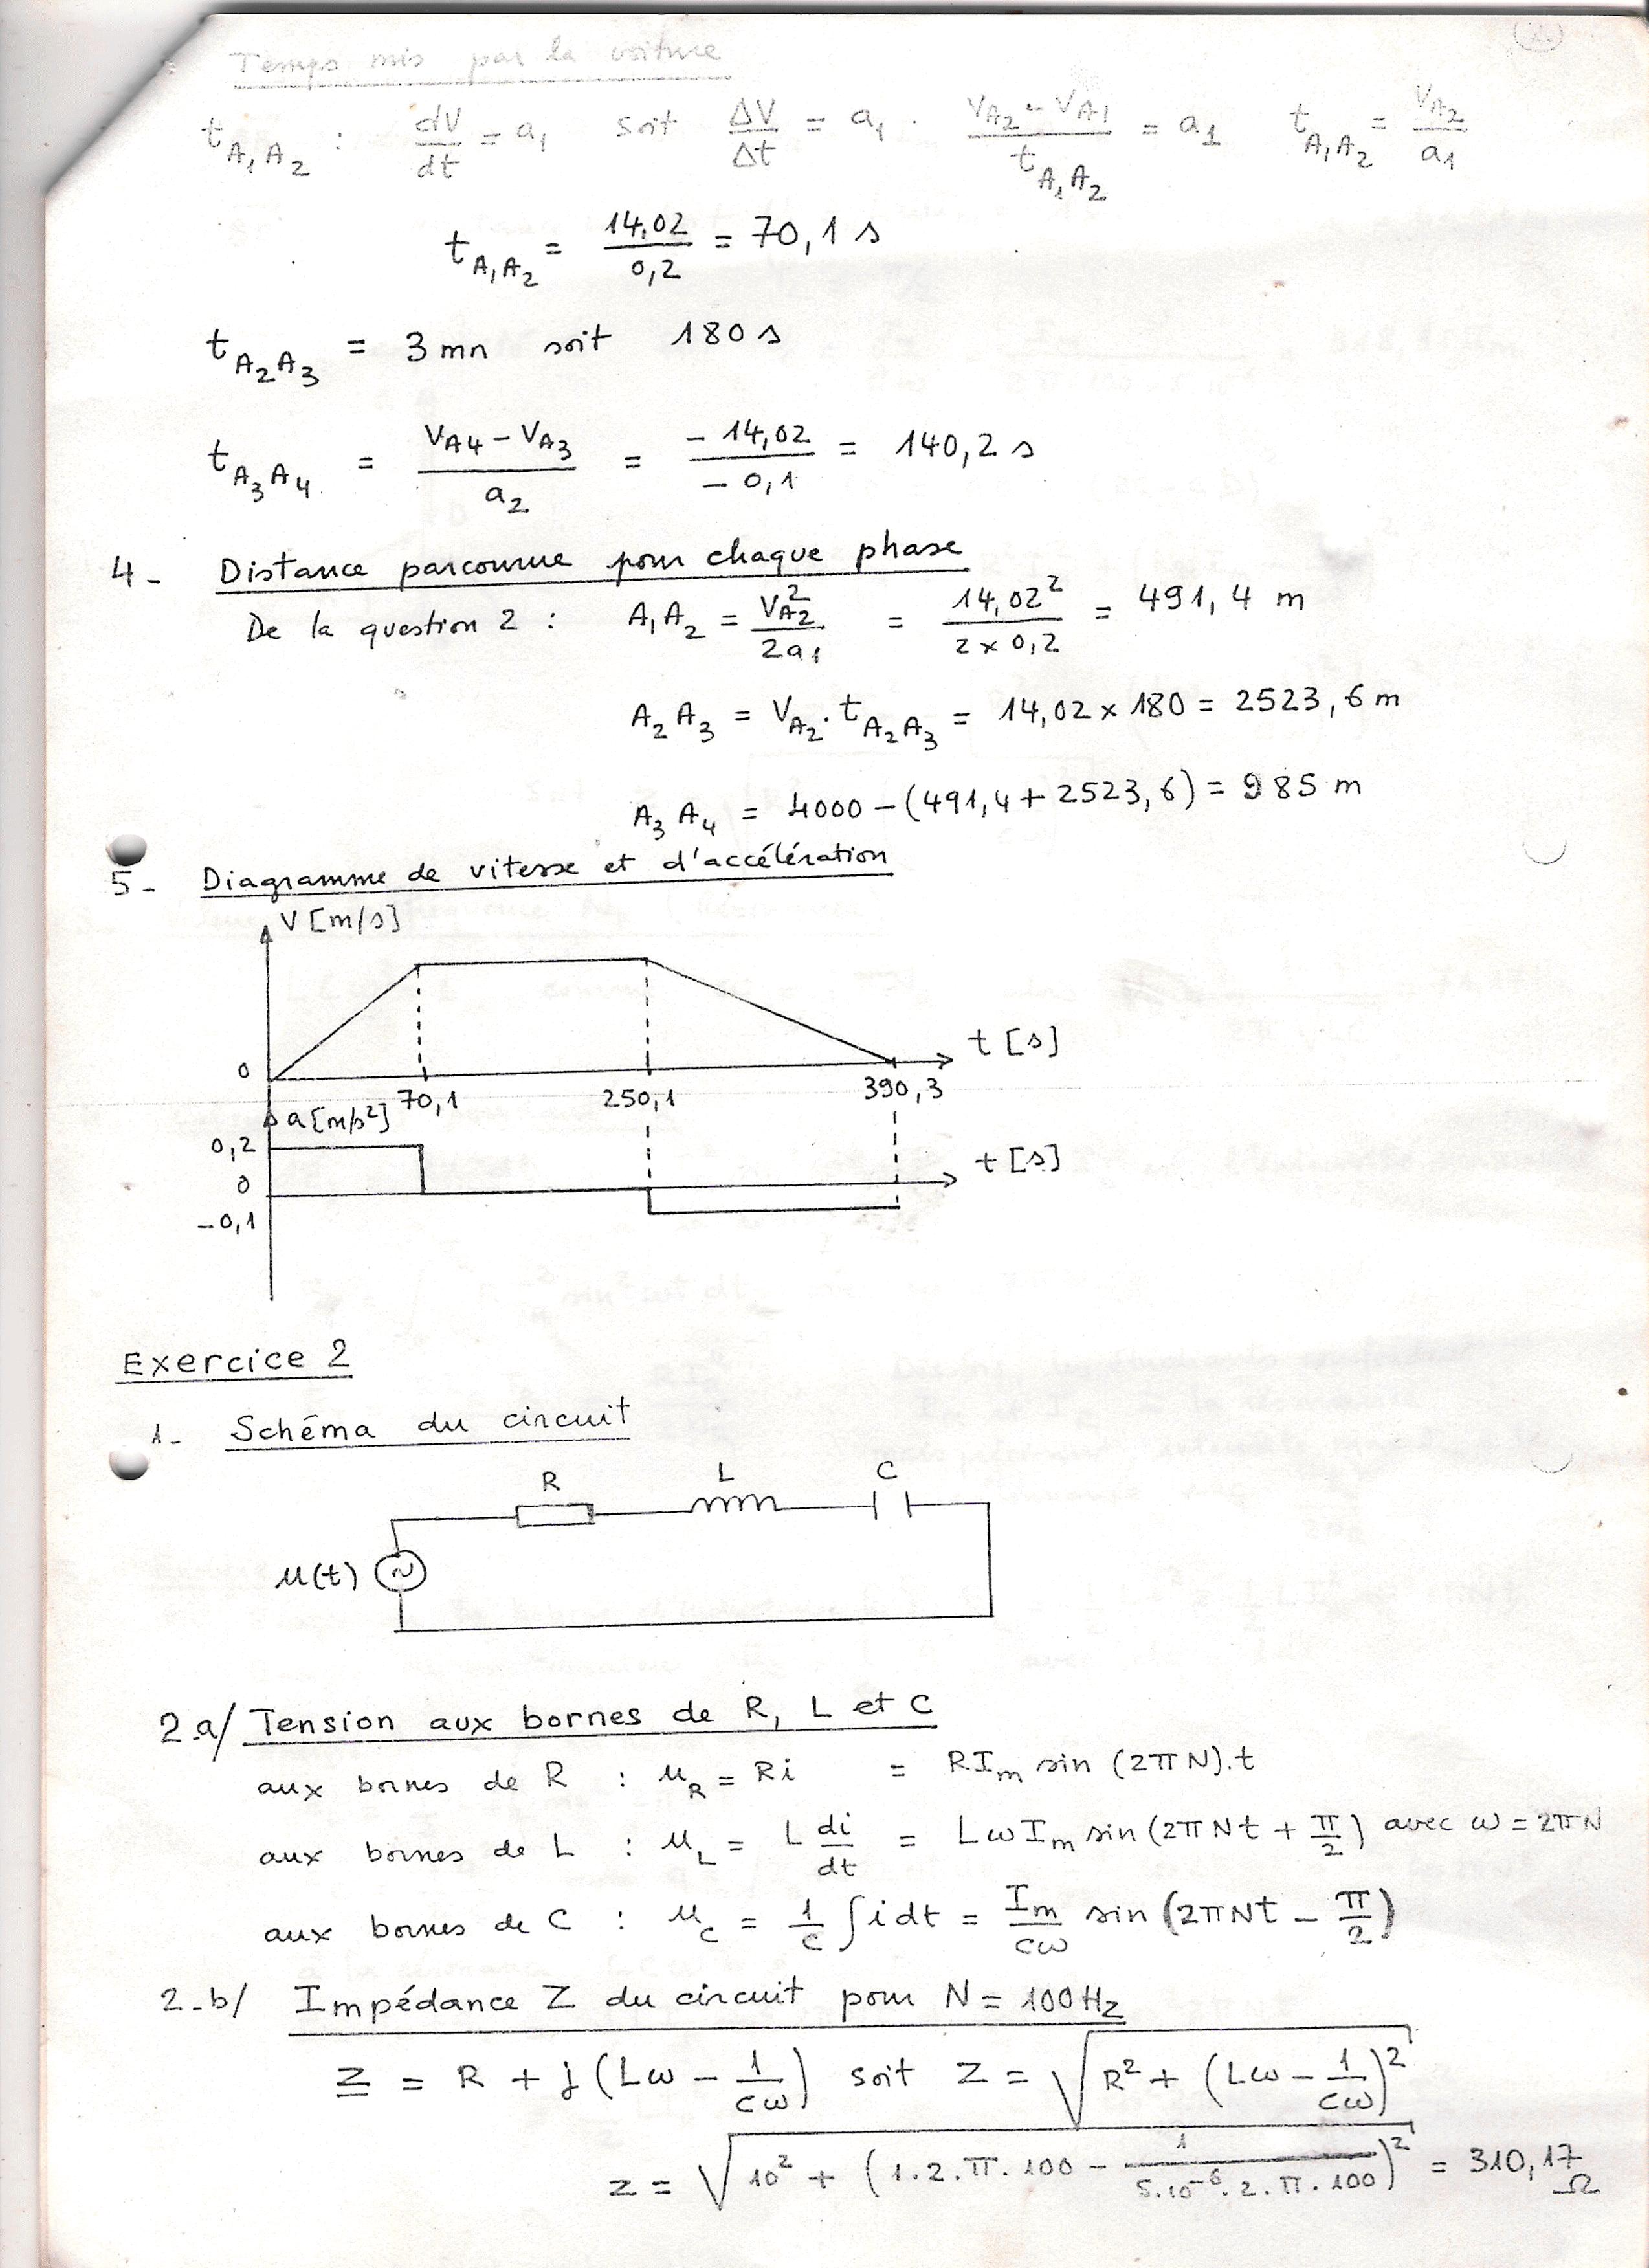 Temps mis par la voiture
t_{A1A2} : dV/dt = a₁ soit ΔV/Δt = a₁ . (V_{A2} - V_{A1})/t_{A1A2} = a₁ t_{A1A2} = V_{A2}/a₁
t_{A1A2} = 14,02/0,2 = 70,1 s
t_{A2A3} = 3 mn soit 180 s
t_{A3A4} = (V_{A4} - V_{A3})/a₂ = -14,02/-0,1 = 140,2 s
4 - Distance parcourue pour chaque phase
De la question 2 : A₁A₂ = V_{A2}²/2a₁ = 14,02²/(2 x 0,2) = 491,4 m
A₂A₃ = V_{A2}.t_{A2A3} = 14,02 x 180 = 2523,6 m
A₃A₄ = 4000 - (491,4 + 2523,6) = 985 m
5 - Diagramme de vitesse et d'accélération
V [m/s]
t [s]
0
70,1 250,1 390,3
a [m/s²]
0,2
t [s]
0
-0,1
Exercice 2
1 - Schéma du circuit
R L C
u(t) ~
2.a/ Tension aux bornes de R, L et C
aux bornes de R : u_R = Ri = RI_m sin (2πN).t
aux bornes de L : u_L = L di/dt = LωI_m sin (2πNt + π/2) avec ω = 2πN
aux bornes de C : u_C = 1/C ∫ i dt = I_m/Cω sin (2πNt - π/2)
2-b/ Impédance Z du circuit pour N = 100 Hz
Z = R + j (Lω - 1/Cω) soit Z = √(R² + (Lω - 1/Cω)²)
Z = √(10² + (1.2.π.100 - 1/(5.10⁻⁶.2.π.100))²) = 310,17 Ω